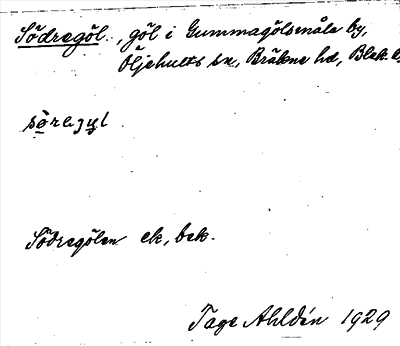 Södregöl, göl i Gummagölsmåla by,
Öljehults sn, Bräkne hd, Blek. l.
Södregölen ek, bek.
Tage Ahldén 1929